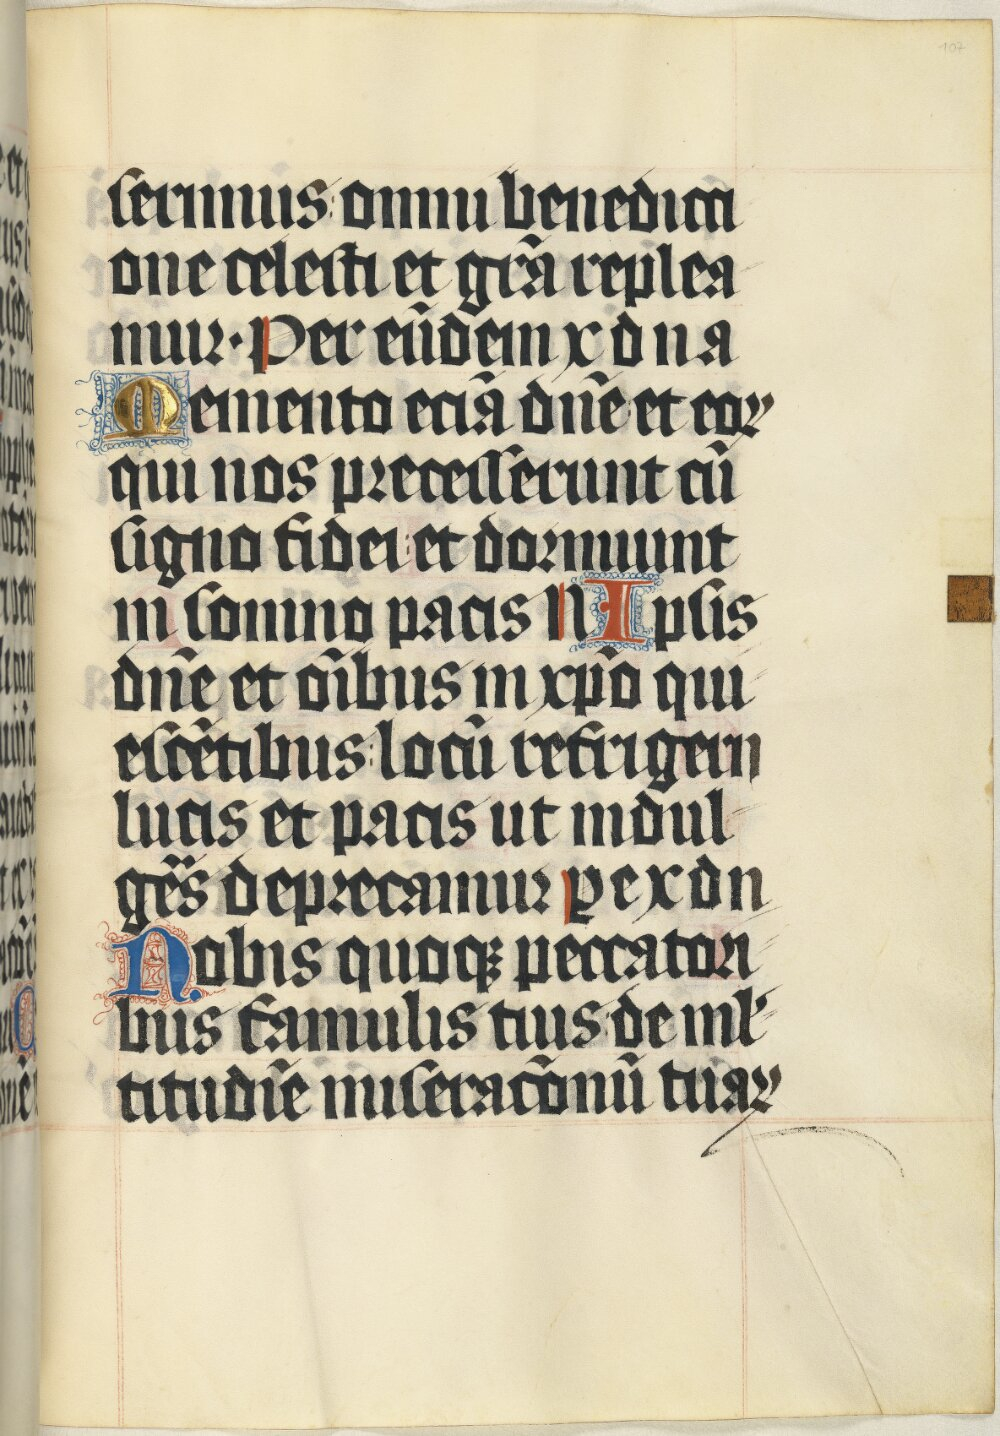 107
serimus: omni benedicti
one celesti et gr̃a replea
mur· Per eũdem x d n a
Memento eciã dñe et eoꝝ
qui nos precesserunt cũ
signo fidei et dormiunt
in somno pacis N Ipsis
dñe et oĩbus in xp̃o qui
escẽtibus: locũ refrigerii
lucis et pacis ut indul
gẽs deprecamur p e x d n
Nobis quoqꝫ peccatori
bus famulis tuis de ml'
titudĩe miseracõnũ tuaꝝ